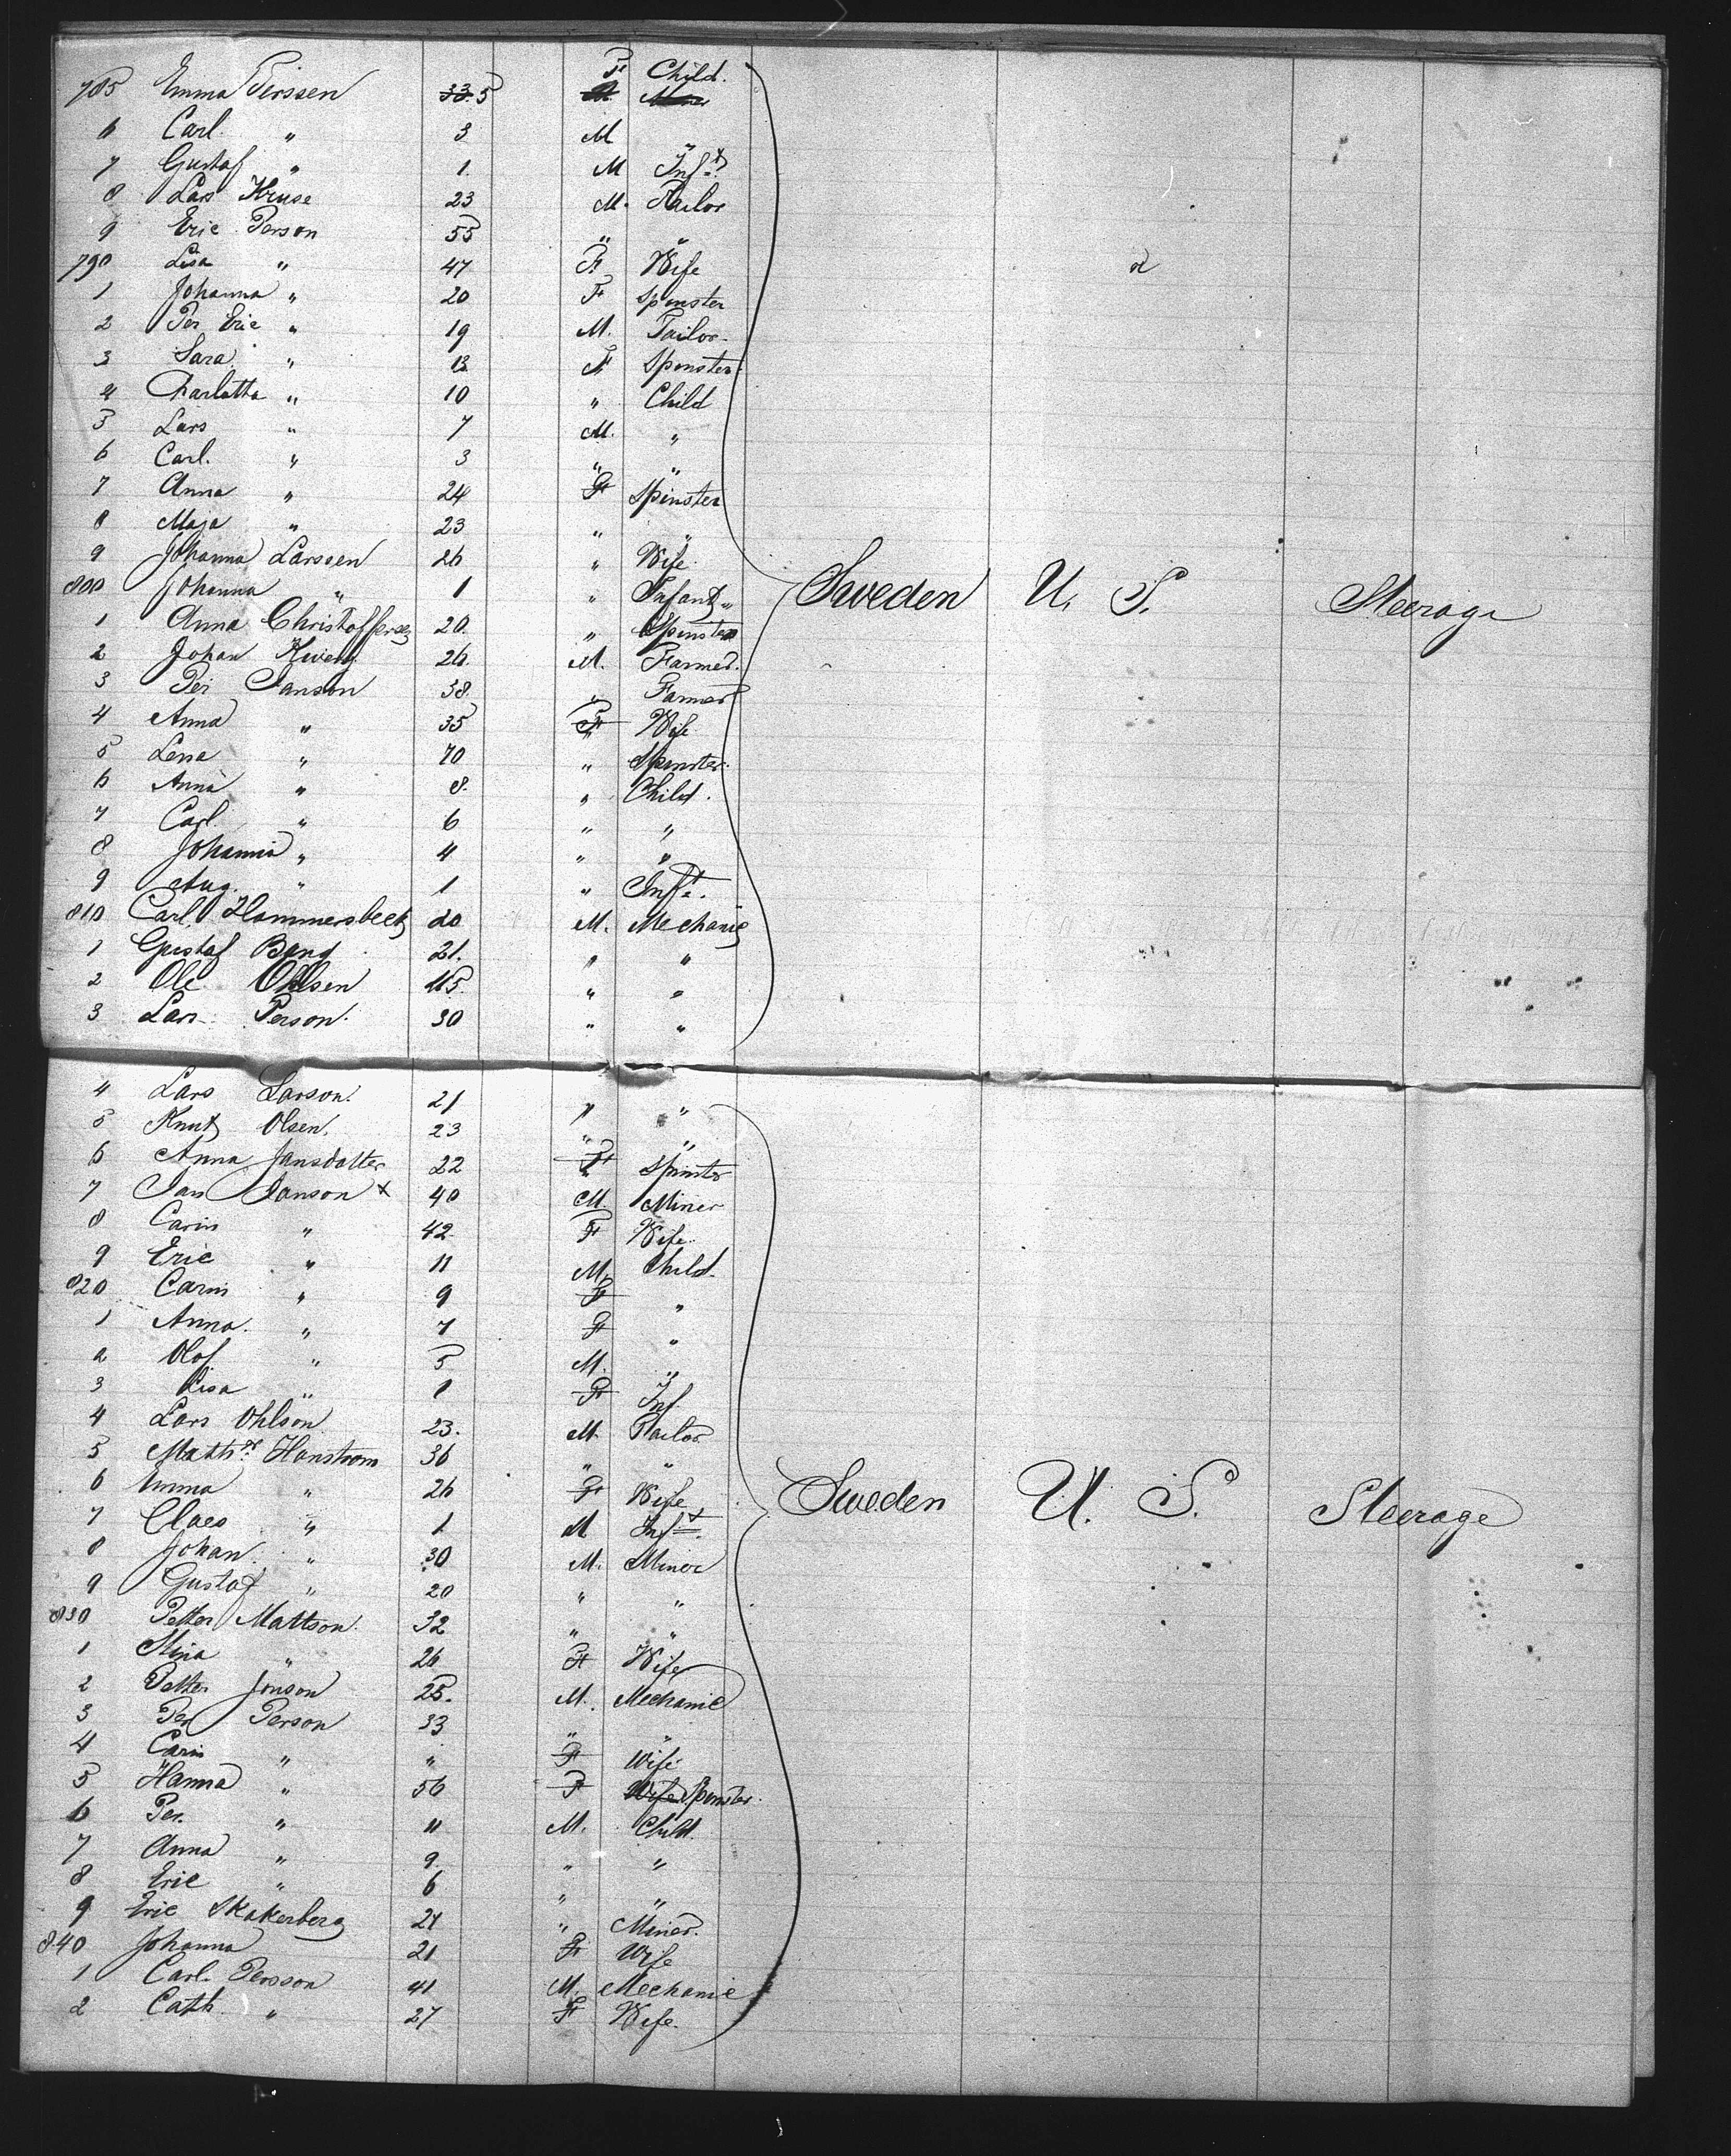 785 Emma Perssen 33. 5 F Child.
6 Carl " 3 M "
7 Gustaf " 1. M Inft.
8 Lars Kruse 23 M. Tailor
9 Eric Person 55 " "
790 Lisa " 47 F. Wife
1 Johanna " 20 F Spenster
2 Per Eric " 19 M. Tailor
3 Sara " 13 F Spenster
4 Charlotta " 10 " Child
5 Lars " 7 M. "
6 Carl. " 3 " "
7 Anna " 24 F Spinster
8 Maja " 23 " "
9 Johanna Larssen 26 " Wife
800 Johanna " 1 " Infant "
1 Anna Christoffersen 20. " Spinster
2 Johan 26. M. Farmer.
3 Per Janson 38. " Farmer
4 Anna " 35 F Wife
5 Lena " 70 " Spenster.
6 Anna " 8. " Child.
7 Carl. " 6 " "
8 Johanna " 4 " "
9 Aug. " 1 " Inft.
810 Carl Hammersbeck 20 M. Mechanic
1 Gustaf 21. " "
2 Ole Ohlsen 45. " "
3 Lars Person. 30 " "
Sweden U. S. Steerage
4 Lars Larson. 21 " "
5 Knut Olsen. 23 " "
6 Anna Jansdotter 22 F Spinster
7 Jan Janson x 40 M. Miner
8 Carin " 42. F Wife.
9 Eric " 11 M. Child.
820 Carin " 9 F "
1 Anna. " 7 F "
2 Olof " 5 M. "
3 Lisa " 1 F Inf
4 Lars Ohlson 23. M. Tailor.
5 Hanstrom 36 " "
6 Emma " 26 F Wife
7 Claes " 1 M Inft.
8 Johan. " 30 M. Miner
9 Gustaf " 20 " "
830 Petter Mattson. 32 " "
1 Stina " 26 F Wife
2 Petter Jonson 25. M. Mechanic
3 Per Person 33 " "
4 Carin " " F Wife
5 Hanna " 56 F Wife Spenster.
6 Per. " 11 M. Child.
7 Anna " 9. " "
8 Eric " 6 " "
9 Eric Skakerberg 24 " Miner.
840 Johanna 21 F Wife
1 Carl. Persson 41 M. Mechanic
2 Cath. " 27 F Wife.
Sweden U. S. Steerage